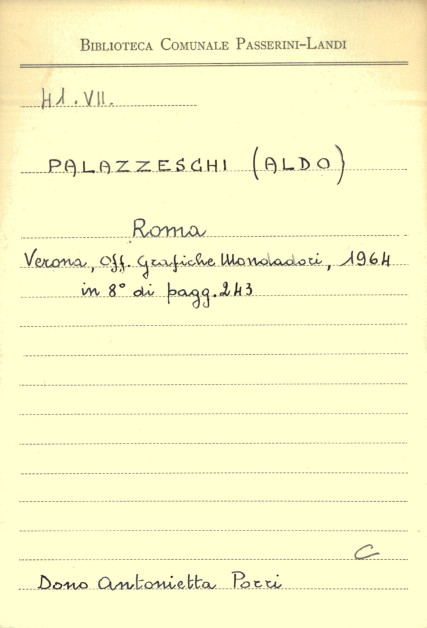 BIBLIOTECA COMUNALE PASSERINI-LANDI
H1.VII.
PALAZZESCHI (ALDO)
Roma
Verona, Off. Grafiche Mondadori, 1964
in 8° di pagg. 243
C
Dono Antonietta Pozzi